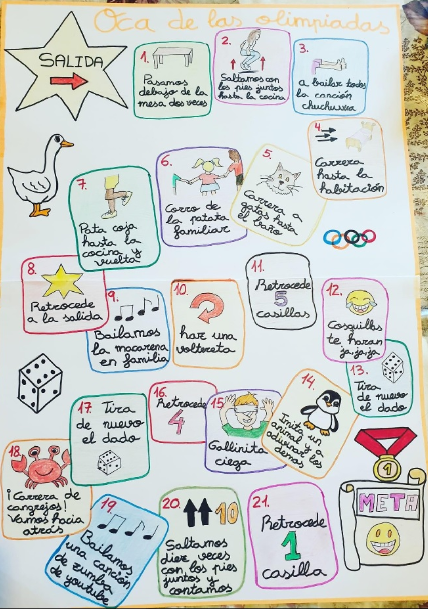 Oca de las olimpiadas
SALIDA
1.
Pasamos
debajo de la
mesa dos veces
2.
Saltamos con
los pies juntos
hasta la cocina
3.
a bailar todos
la canción
chuchuwa
4.
Carrera
hasta la
habitación
5.
Carrera a
gatas hasta
el baño
6.
Corro de
la patata
familiar
7.
Pata coja
hasta la
cocina y
vuelta
8.
Retrocede
a la salida
9.
Bailamos
la macarena
en familia
10.
haz una
voltereta
11.
Retrocede
5
casillas
12.
Cosquillas
te haran
ja, ja, ja
13.
Tira
de nuevo
el dado
14.
Imita un
animal y a
adivinar los
demas
15
Gallinita
ciega
16.
Retrocede
4
17.
Tira
de nuevo
el dado
18.
¡Carrera de
cangrejos!
Vamos hacia
atrás
19
Bailamos
una canción
de rumba
de youtube
20.
10
Saltamos
diez veces
con los pies
juntos y
contamos
21.
Retrocede
1
casilla
1
META